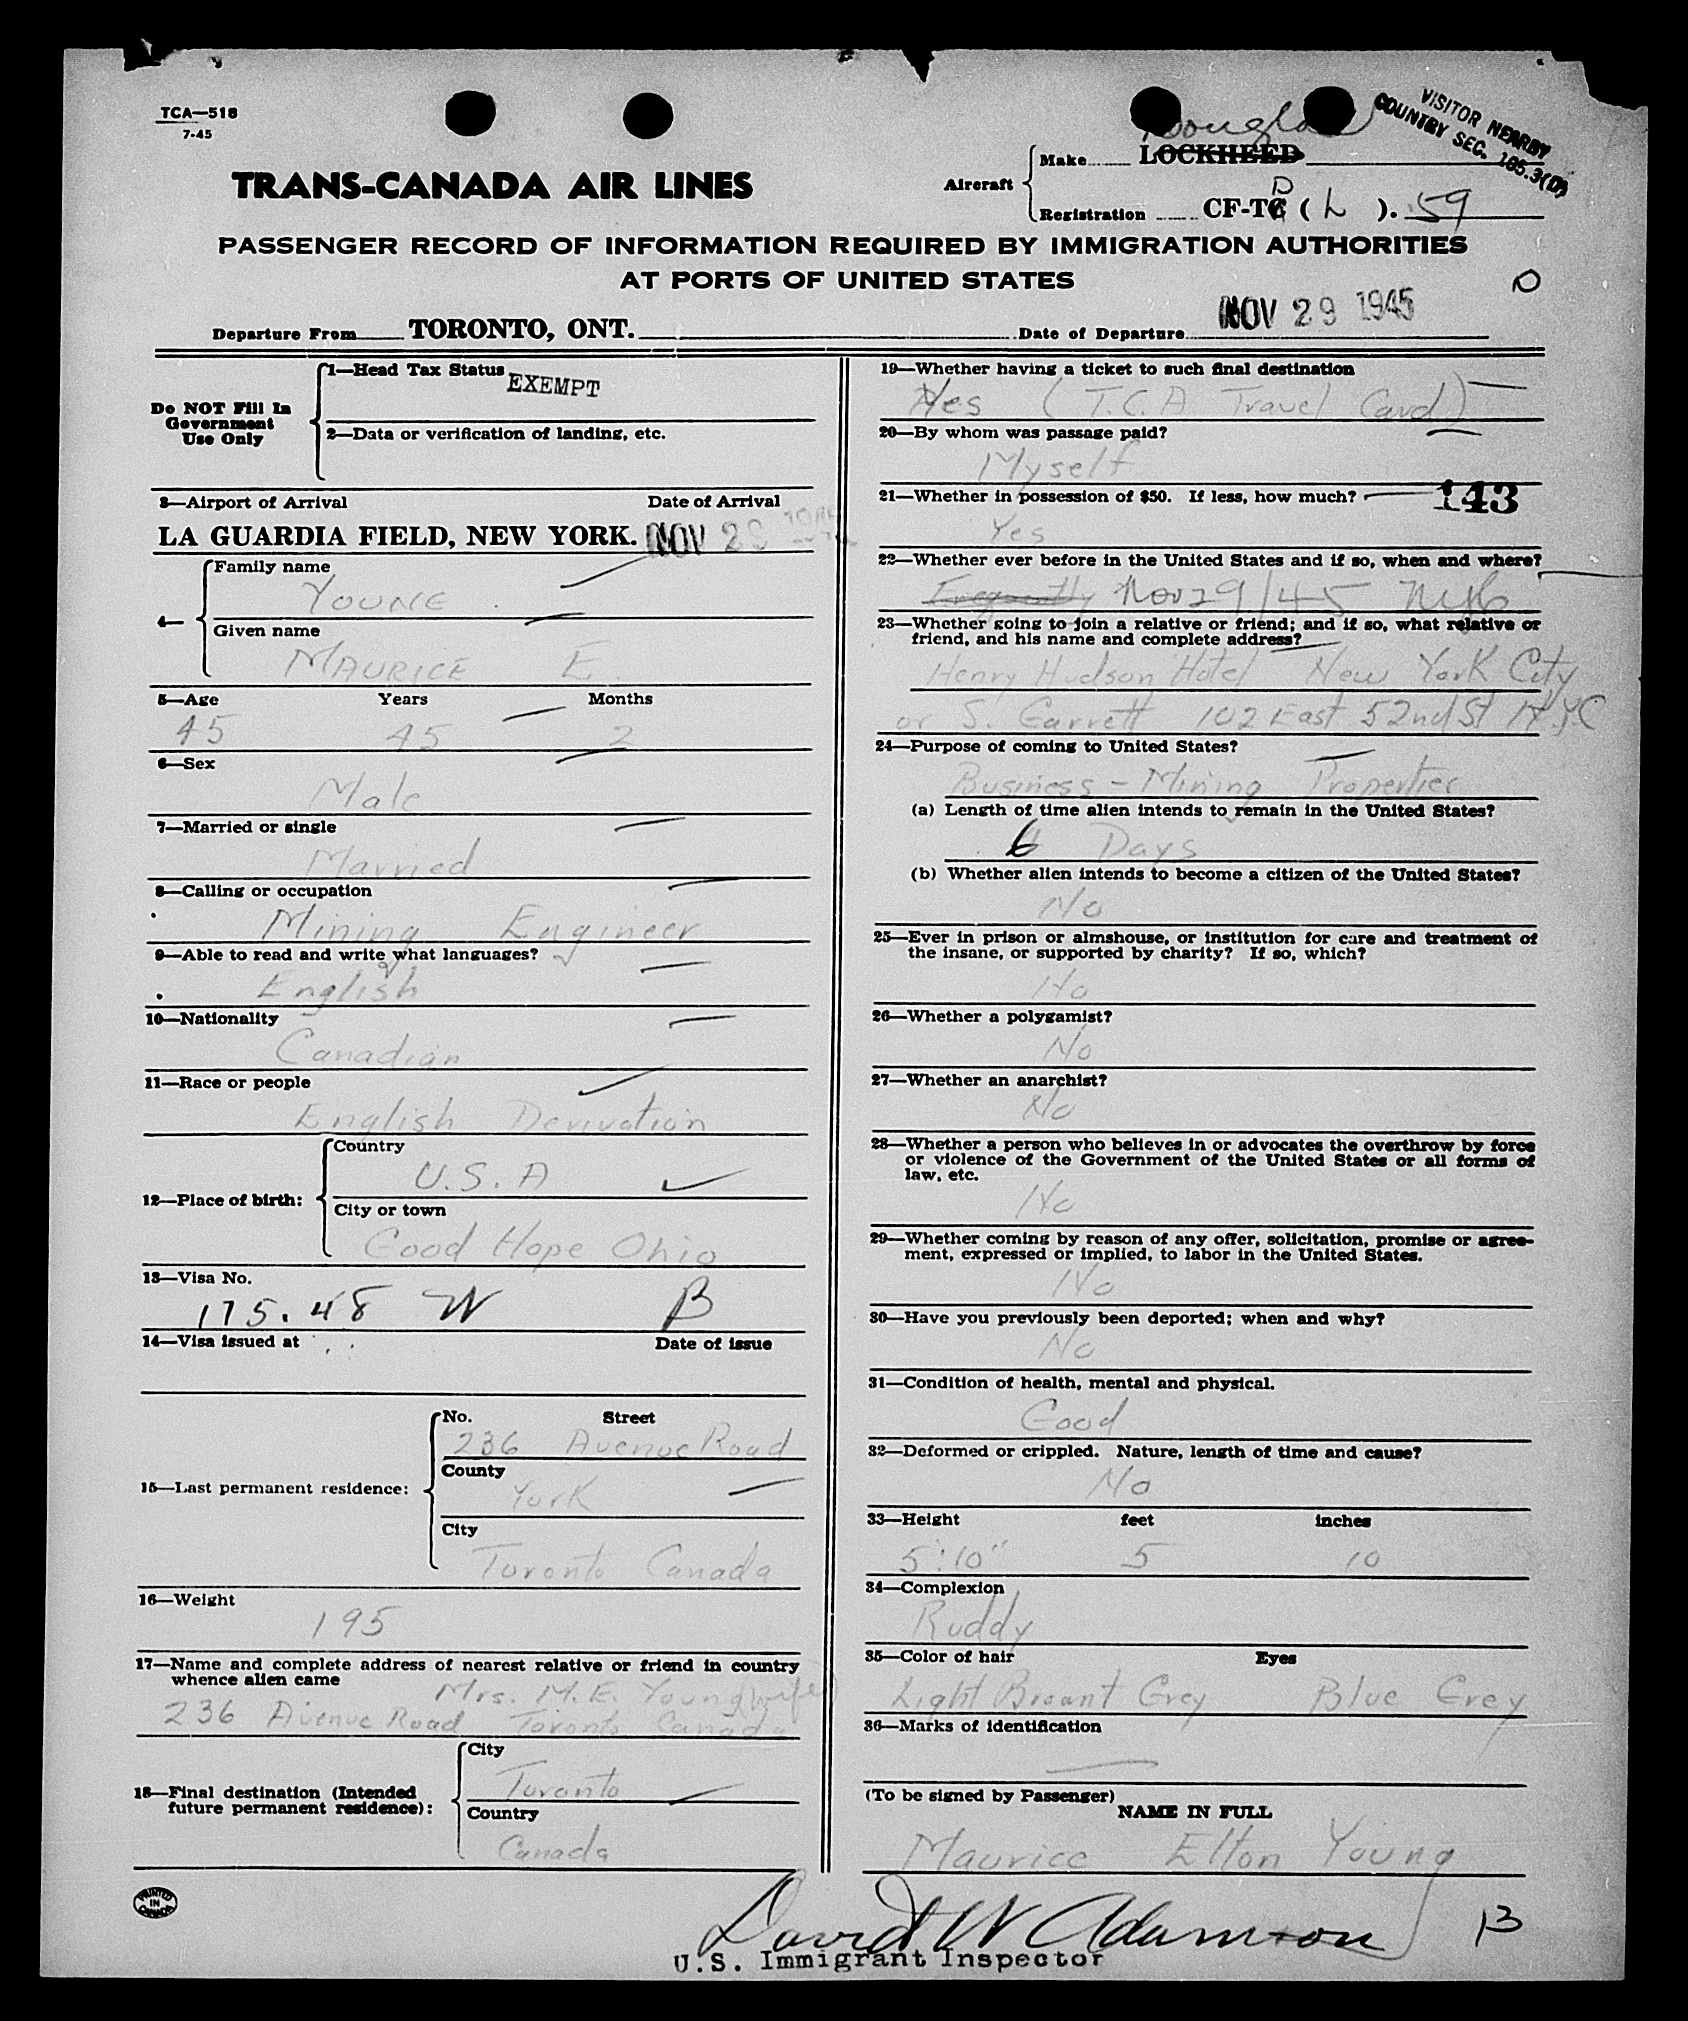 TCA—518
7-45
TRANS-CANADA AIR LINES
Aircraft
Make Douglas LOCKHEED
Registration CF-TC (L). 59
VISITOR NEARBY
COUNTRY SEC. 165.3(D)
PASSENGER RECORD OF INFORMATION REQUIRED BY IMMIGRATION AUTHORITIES
AT PORTS OF UNITED STATES
Departure From TORONTO, ONT. Date of Departure NOV 29 1945
Do NOT Fill In
Government
Use Only
1—Head Tax Status EXEMPT
2—Data or verification of landing, etc.
3—Airport of Arrival Date of Arrival
LA GUARDIA FIELD, NEW YORK. NOV 29 1945
4—
Family name
YOUNG
Given name
MAURICE E.
5—Age Years Months
45 45 2
6—Sex
Male
7—Married or single
Married
8—Calling or occupation
Mining Engineer
9—Able to read and write what languages?
English
10—Nationality
Canadian
11—Race or people
English Derivation
12—Place of birth:
Country
U.S.A
City or town
Good Hope Ohio
13—Visa No.
175.48 W B
14—Visa issued at Date of issue
15—Last permanent residence:
No. Street
236 Avenue Road
County
York
City
Toronto Canada
16—Weight
195
17—Name and complete address of nearest relative or friend in country
whence alien came
Mrs. M.E. Young (wife)
236 Avenue Road Toronto Canada
18—Final destination (Intended
future permanent residence):
City
Toronto
Country
Canada
PRINTED
IN
CANADA
19—Whether having a ticket to such final destination
Yes (T.C.A Travel Card)
20—By whom was passage paid?
Myself
21—Whether in possession of $50. If less, how much? 143
Yes
22—Whether ever before in the United States and if so, when and where?
Frequently Nov 29/45 NYC
23—Whether going to join a relative or friend; and if so, what relative or
friend, and his name and complete address?
Henry Hudson Hotel New York City
or S. Garrett 102 East 52nd St N.Y.C
24—Purpose of coming to United States?
Business - Mining Properties
(a) Length of time alien intends to remain in the United States?
6 Days
(b) Whether alien intends to become a citizen of the United States?
No
25—Ever in prison or almshouse, or institution for care and treatment of
the insane, or supported by charity? If so, which?
No
26—Whether a polygamist?
No
27—Whether an anarchist?
No
28—Whether a person who believes in or advocates the overthrow by force
or violence of the Government of the United States or all forms of
law, etc.
No
29—Whether coming by reason of any offer, solicitation, promise or agree-
ment, expressed or implied, to labor in the United States.
No
30—Have you previously been deported; when and why?
No
31—Condition of health, mental and physical.
Good
32—Deformed or crippled. Nature, length of time and cause?
No
33—Height feet inches
5'.10" 5 10
34—Complexion
Ruddy
35—Color of hair Eyes
Light Brown Grey Blue Grey
36—Marks of identification
(To be signed by Passenger)
NAME IN FULL
Maurice Elton Young
David W Adamson
U.S. Immigrant Inspector